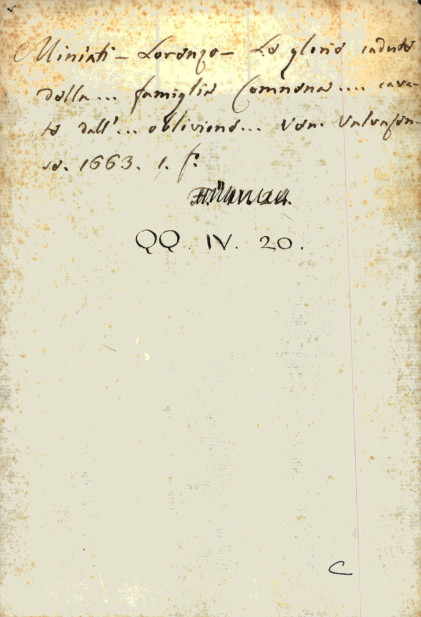 Miniati - Lorenzo - Le glorie cadute
della... famiglia Comnena.... cava-
te dall'... oblivione... Ven. Valvasen-
se. 1663. 1. f.
QQ. IV. 20.
C